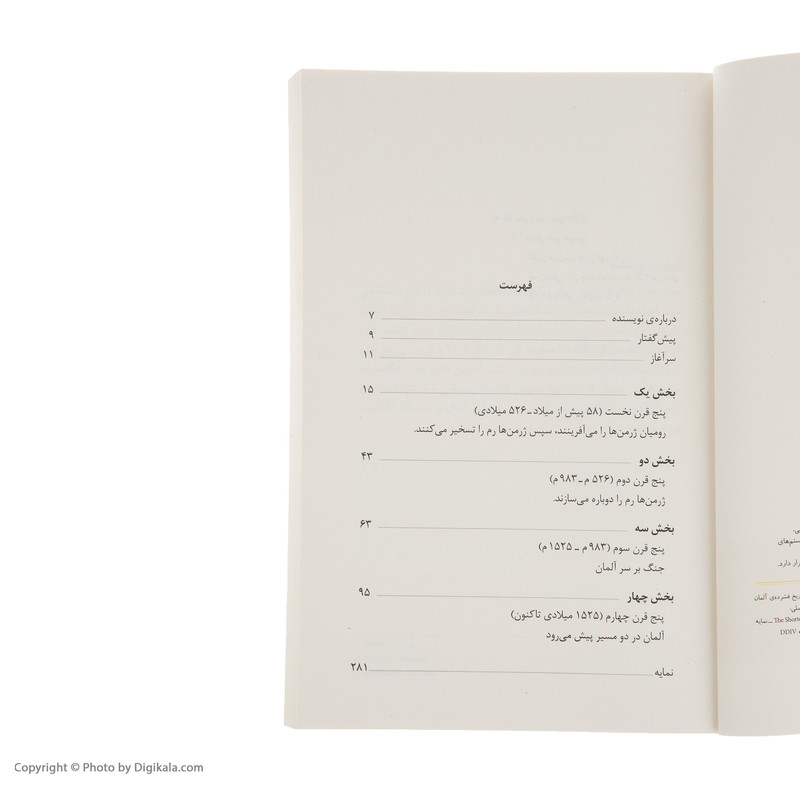 فهرست
درباره‌ی نویسنده ۷
پیش‌گفتار ۹
سرآغاز ۱۱
بخش یک ۱۵
پنج قرن نخست (۵۸ پیش از میلاد ـ ۵۲۶ میلادی)
رومیان ژرمن‌ها را می‌آفرینند، سپس ژرمن‌ها رم را تسخیر می‌کنند.
بخش دو ۴۳
پنج قرن دوم (۵۲۶ م ـ ۹۸۳ م)
ژرمن‌ها رم را دوباره می‌سازند.
بخش سه ۶۳
پنج قرن سوم (۹۸۳ م ـ ۱۵۲۵ م)
جنگ بر سر آلمان
بخش چهار ۹۵
پنج قرن چهارم (۱۵۲۵ میلادی تاکنون)
آلمان در دو مسیر پیش می‌رود
نمایه ۲۸۱
ستم‌های
رار دارد.
فشرده‌ی آلمان
The Shorte ـ نمایه
DDIV
Copyright © Photo by Digikala.com